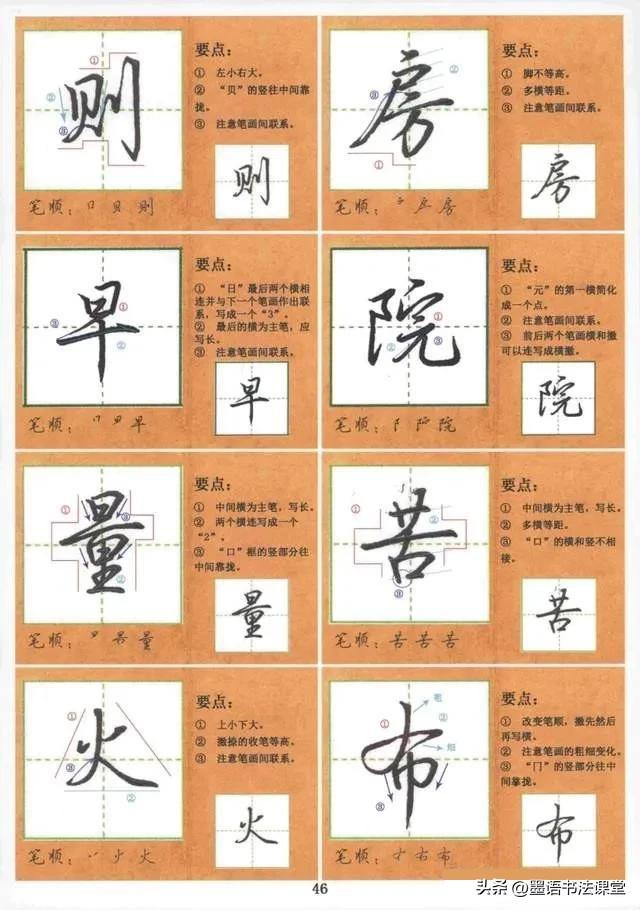 则
①
②
③
要点：
① 左小右大。
② “贝”的竖往中间靠
拢。
③ 注意笔画间联系。
则
笔顺：冂 贝 则
房
②
③
①
要点：
① 脚不等高。
② 多横等距。
③ 注意笔画间联系。
房
笔顺：
房
早
①
③
②
要点：
① “日”最后两个横相
连并与下一个笔画作出联
系，写成一个“3”。
② 最后的横为主笔，应
写长。
③ 注意笔画间联系。
早
笔顺：
早
院
①
②
③
要点：
① “元”的第一横简化
成一个点。
② 注意笔画间联系。
③ 前后两个笔画横和撇
可以连写成横撇。
院
笔顺：阝
院
量
①
③
②
要点：
① 中间横为主笔，写长。
② 两个横连写成一个
“2”。
③ “口”框的竖部分往
中间靠拢。
量
笔顺：
量
苦
①
②
③
要点：
① 中间横为主笔，写长。
② 多横等距。
③ “口”的横和竖不相
接。
苦
笔顺：苦 苦 苦
火
①
③
②
要点：
① 上小下大。
② 撇捺的收笔等高。
③ 注意笔画间联系。
火
笔顺：丷 火 火
布
粗
①
②
细
③
要点：
① 改变笔顺，撇先然后
再写横。
② 注意笔画的粗细变化。
③ “冂”的竖部分往中
间靠拢。
布
笔顺：
布
46
头条 @墨语书法课堂